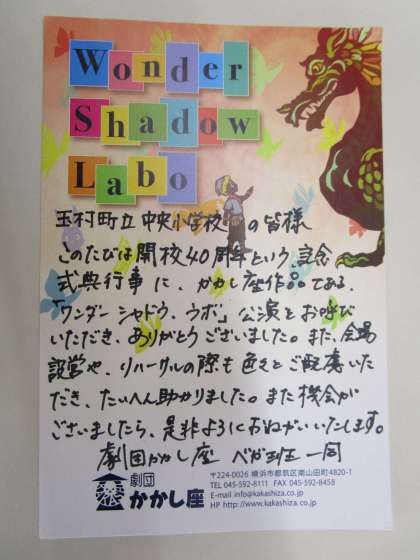 Wonder
Shadow
Labo
玉村町立中央小学校の皆様
このたびは開校40周年という記念
式典行事に、かかし座作品である、
「ワンダーシャドウ・ラボ」公演とお呼び
いただき、ありがとうございました。また、会場
設営や、リハーサルの際も色々とご配慮いた
だき、たいへん助かりました。また機会が
ございましたら、是非ようにおねがいいたします。
劇団かかし座 ベガ班一同
劇団
かかし座
〒224-0026 横浜市都筑区南山田町4820-1
TEL 045-592-8111 FAX 045-592-8458
E-mail info@kakashiza.co.jp
HP http://www.kakashiza.co.jp